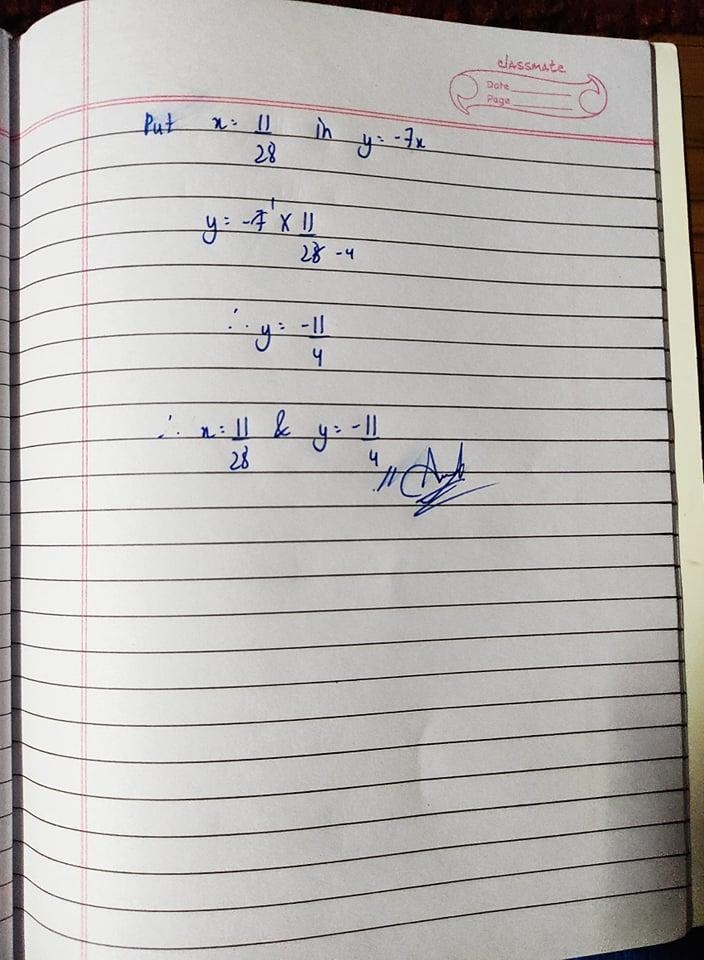 classmate
Date
Page
Put x = 11/28 in y = -7x
y = -7 1 X 11/28 - 4
∴ y = -11/4
∴ x = 11/28 & y = -11/4 //